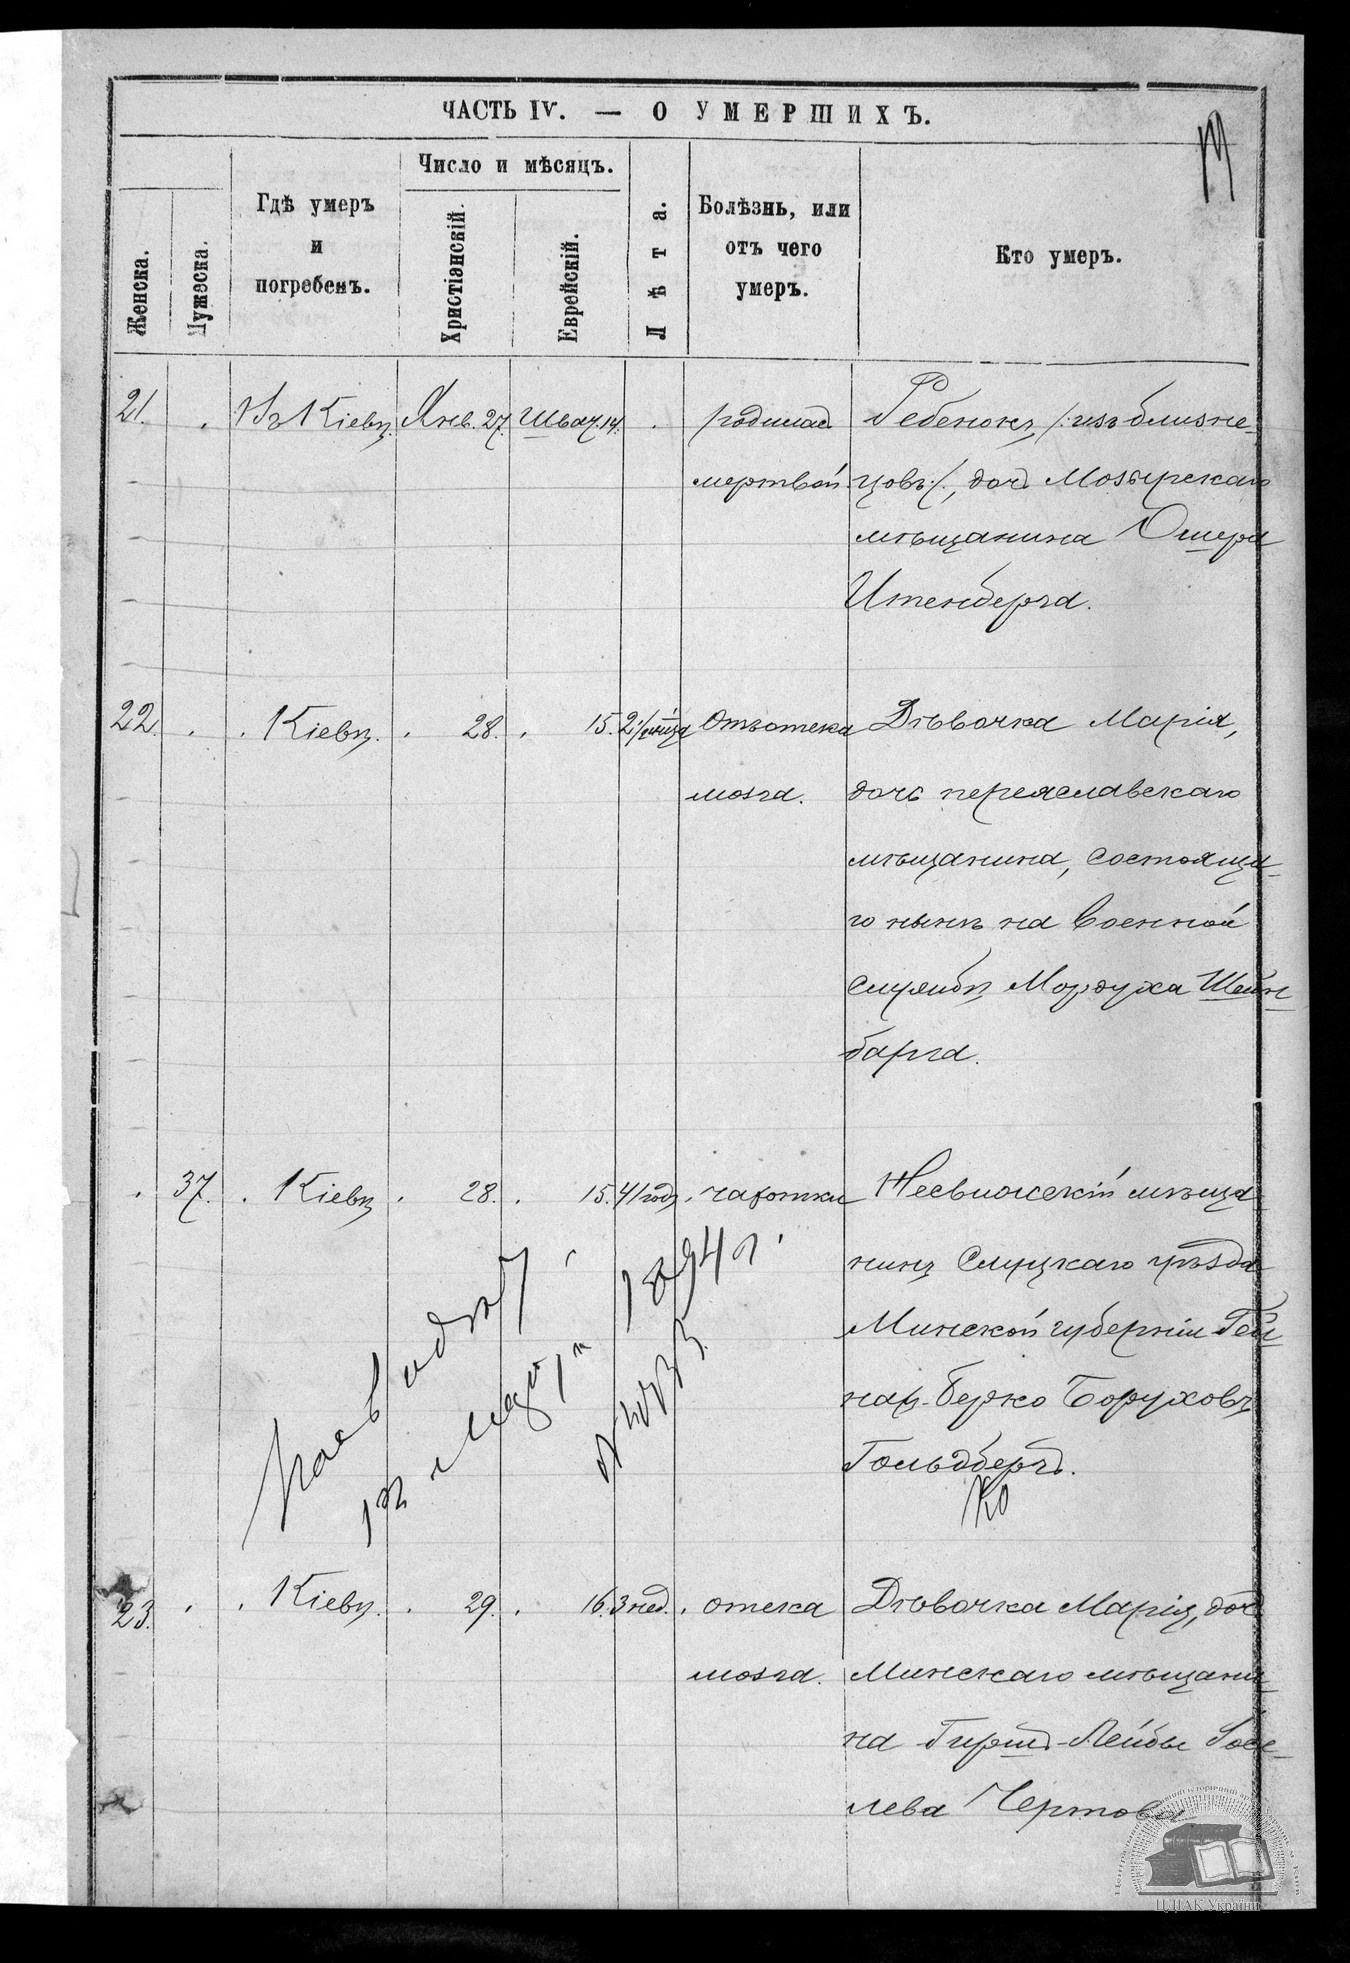 ЧАСТЬ IV. — О УМЕРШИХЪ.
Женска.
Мужеска.
Гдѣ умеръ
и
погребенъ.
Число и мѣсяцъ.
Христіанскій.
Еврейскій.
Лѣта.
Болѣзнь, или
отъ чего
умеръ.
Кто умеръ.
21. Въ Кіевѣ. Янв. 27. Шват. 14. родилась Ребенокъ /:изъ близне-
мертвой цовъ:/, дочь Мозырскаго
мѣщанина Ошера
Итенберга.
22. Кіевѣ. 28. 15. 2 Отъ отека Дѣвочка Марія,
мозга. дочь переяславскаго
мѣщанина, состояща-
го нынѣ на военной
службѣ Мордуха Штейн-
барга.
37. Кіевѣ 28. 15. 41 годъ. чахотки Несвижскій мѣща-
нинъ Слуцкаго уѣзда
Минской губерніи
Берко Боруховъ
Гольдбергъ.
1894 г.
23. Кіевѣ. 29. 16. 3 нед. отека Дѣвочка Марія, дочь
мозга. Минскаго мѣщани-
на Гиршъ-Лейбы Іосе-
лева Чертова
ЦДІАК України